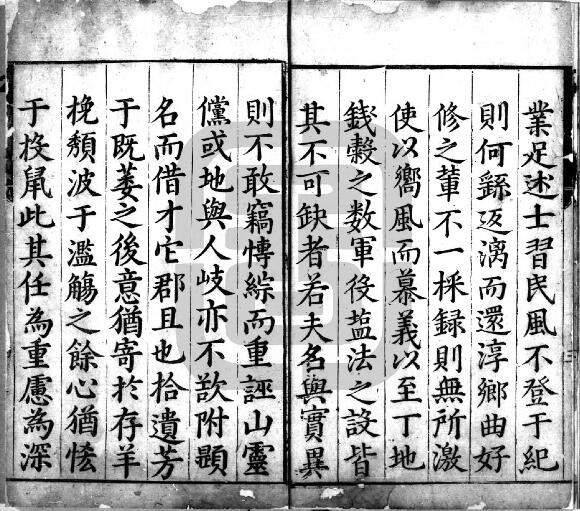 業足述士習民風不登于紀
則何繇返漓而還淳鄉曲好
修之輩不一採録則無所激
使以嚮風而慕義以至丁地
錢穀之数軍役盐法之設皆
其不可缺者若夫名與實異
則不敢竊愽綜而重誣山靈
儻或地與人岐亦不欲附顯
名而借才它郡且也拾遺芳
于既萎之後意猶寄於存羊
挽頽波于濫觴之餘心猶恠
于投鼠此其任為重慮為深